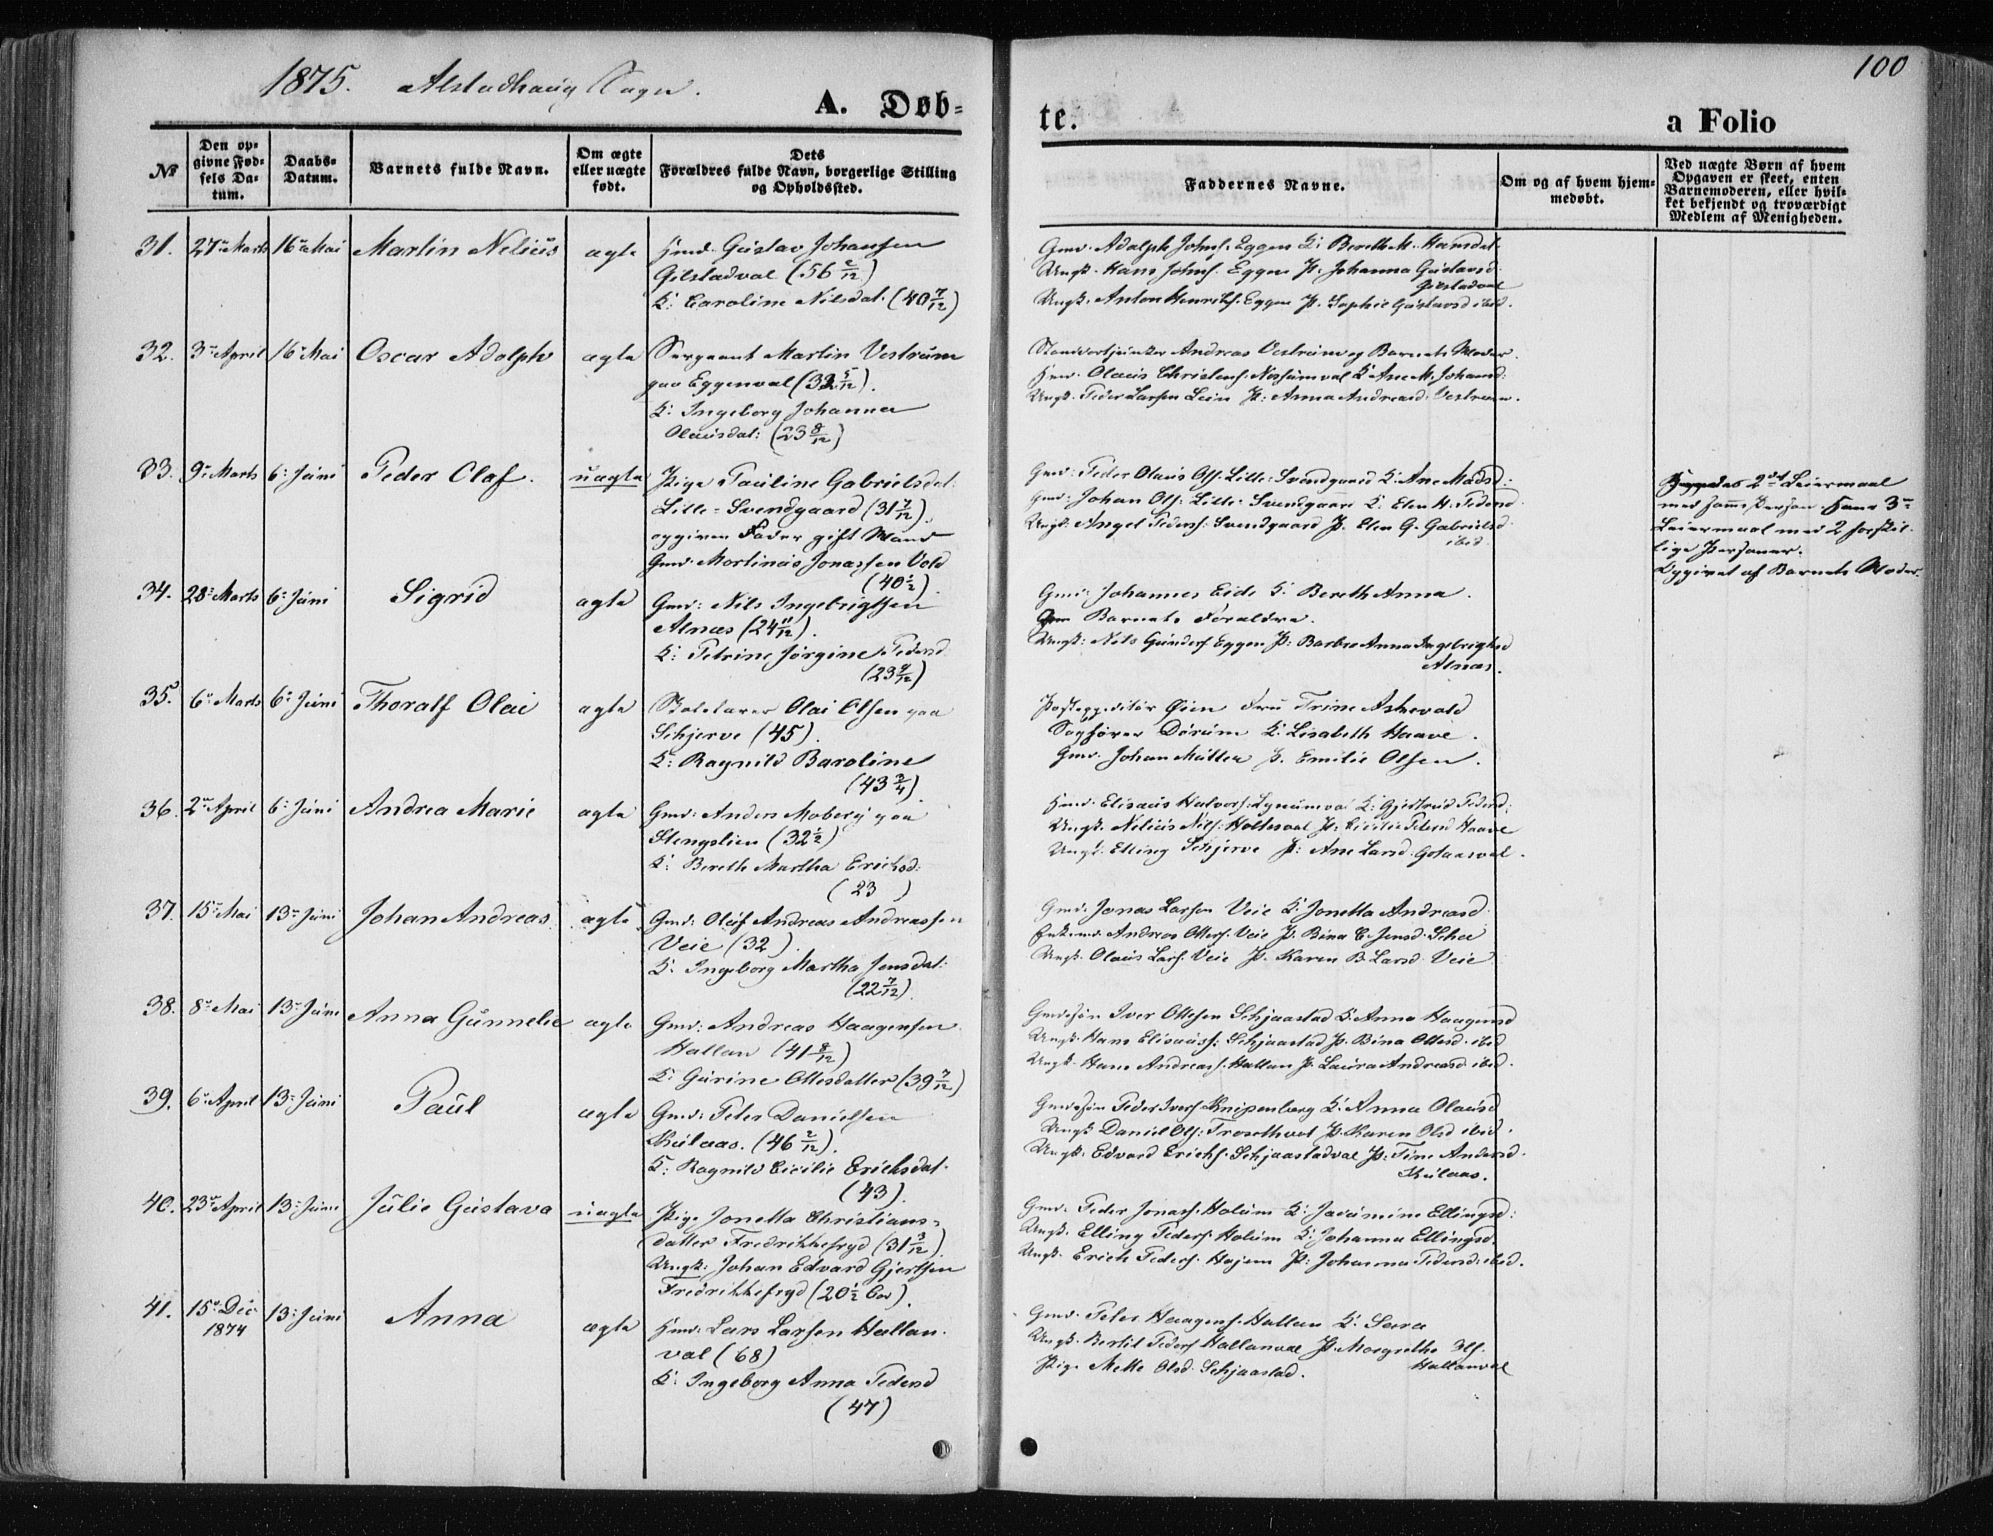 1875. Alstadhaug Sogn.
A. Døb-
te.
a Folio
100
№
Den op-
givne Fød-
sels Da-
tum.
Daabs-
Datum.
Barnets fulde Navn.
Om ægte
eller uægte
født.
Dets
Forældres fulde Navn, borgerlige Stilling
og Opholdssted.
Faddernes Navne.
Om og af hvem hjem-
medøbt.
Ved uægte Børn af hvem
Opgaven er skeet, enten
Barnemoderen, eller hvil-
ket bekjendt og troværdigt
Medlem af Menigheden.
31. 27de Marts 16de Mai Martin Nelius ægte Hmd. Gustav Johansen
Gilstadval (56 2/12)
K: Caroline Nilsdat. (40 7/12)
Gmd. Adolph Johns. Eggen K: Bereth M. Hansdat.
Ungk. Hans Johns. Eggen P. Johanna Gustavsd.
Gilstadval
Ungk. Anton Henriks. Eggen P. Sophie Gustavsd ibid.
32. 3de April 16de Mai Oscar Adolph ægte Sergeant Martin Vestrum
paa Eggenval (32 5/12).
K: Ingeborg Johanna
Olausdat: (23 8/12)
Andreas Vestrum og Barnets Moder.
Hmd. Olaus Christens. Nossumval K Ane M. Johansd:
Ungk. Peder Larsen Lein P: Anna Andreasd. Vestrum.
33. 9de Marts 6te Juni Peder Olaf. uægte Pige Pauline Gabrielsdat.
Lille-Svendgaard (31 7/12).
opgiven Fader gift Mand
Gmd. Martinus Jonassen Vold
(40 1/2).
Gmd: Peder Olaus Ols. Lille-Svendgaard K. Ane Madsd:
Gmd: Johan Ols. Lille-Svendgaard K. Elen H. Pedersd.
Ungk. Angel Peders. Svendgaard P. Elen G. Gabrielsd
ibid.
Hendes 2det Leiermaal
med samme Person. Hans 3de
Leiermaal med 2 forskjel-
lige Personer.
Opgivet af Barnets Moder.
34. 28de Marts 6te Juni Sigrid ægte Gmd: Nils Ingebrigtsen
Alnæs (24 11/12).
K: Petrine Jørgine Pedersd
(23 7/12)
Gmd: Johannes Eide K. Bereth Anna.
Barnets Forældre.
Ungk: Nils Gunders Eggen P: Barbro Anna Ingebrigtsd
Alnæs.
35. 6te Marts 6te Juni Thoralf Olai ægte Skolelærer Olai Olsen paa
Schjerve (45).
K: Ragnild Baroline
(43 3/4).
Postexpeditør Øien Fru Trine Ashevold
Sagfører Dørum K. Lisabeth Haave.
Gmd. Johan Müller P. Emilie Olsen.
36. 2den April 6te Juni Andrea Marie ægte Gmd: Anders Moberg paa
Stengslien (32 1/2)
K: Bereth Martha Erichsd:
(23 )
Hmd. Elisæus Halvors: Lynumval K: Gjertrud Pedersd:
Ungk. Nelius Nils. Holtesval P: Cicilie Petersd Haave
Ungk. Elling Schjerve P: Ane Larsd.
37. 15de Mai 13de Juni Johan Andreas ægte Gmd: Oluf Andreas Andreassen
Veie (32).
K. Ingeborg Martha Jensdat:
(22 7/12).
Gmd. Jonas Larsen Veie K. Jonetta Andreasd.
Enkemd. Andreas Olles. Veie P. Bina E. Jensd.
Ungk. Olaus Lars. Veie P. Karen B. Larsd. Veie
38. 8de Mai 13de Juni Anna Gunnelie ægte Gmd: Andreas Haagensen
Hallan (41 8/12)
K: Gurine Ottesdatter (39 7/12)
Gmdsøn Iver Ottesen Schjaastad K. Anna Haagensd
Ungk. Hans Elisæuss: Schjaastad P. Bina Ottesd. ibid
Ungk. Hans Andreass. Hallan P. Laura Andreasd ibid.
39. 6te April 13de Juni Paul ægte Gmd: Peter Danielsen
Skulaas. (46 2/12).
K: Ragnild Cicilie Erichsdat.
(43).
Gmdsøn Peder Ivers Knipenberg K: Anna Olausd
Ungk Daniel Ols: Trosethval P. Karen Olsd ibid.
Ungk: Edvard Erichs. Schjaastadval P: Tine Andersd.
Skulaas.
40. 23de April 13de Juni Julie Gustava uægte Pige Jonetta Christians-
datter Fredrikkefryd (31 3/12).
Ungk: Johan Edvard Gjertsen
Fredrikkefryd (20 1/2).
Gmd. Peder Jonas. Holum K: Jacumine Ellingsd:
Ungk. Elling Peders. Holum K: Johanna Ellingsd.
Ungk. Erich Peders. Hojem P: Johanna Pedersd. ibid.
41. 15de Dec. 1874 13de Juni Anna ægte Hmd. Lars Larsen Hallan-
val (68)
K: Ingeborg Anna Pedersd
(47)
Gmd. Peter Haagens. Hallan K: Sara
Ungk. Bertil Peders Hallanval P: Margrethe
Hallanval
Pige Mette Olsd. Schjaastad.